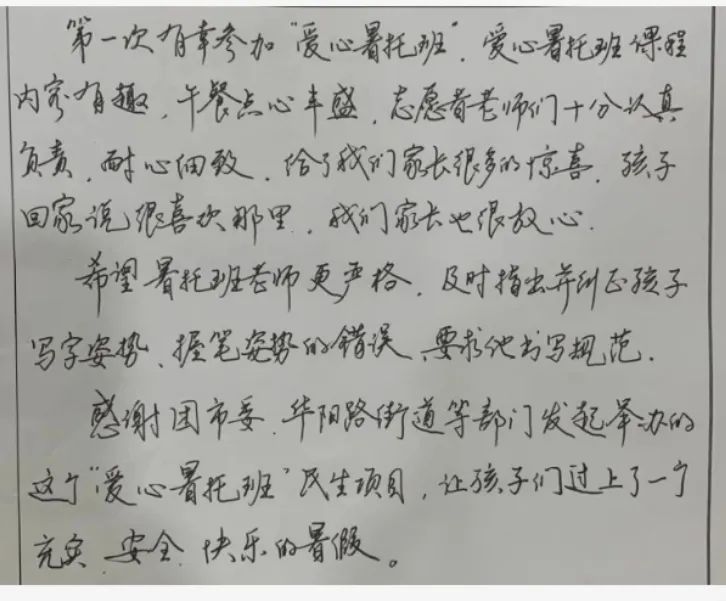 第一次有幸参加“爱心暑托班”，爱心暑托班课程
内容有趣，午餐点心丰盛，志愿者老师们十分认真
负责，耐心细致，给了我们家长很多的惊喜，孩子
回家说很喜欢那里，我们家长也很放心.
希望暑托班老师更严格，及时指出并纠正孩子
写字姿势、握笔姿势的错误，要求他书写规范.
感谢团市委、华阳路街道等部门发起举办的
这个“爱心暑托班”民生项目，让孩子们过上了一个
充实、安全、快乐的暑假。